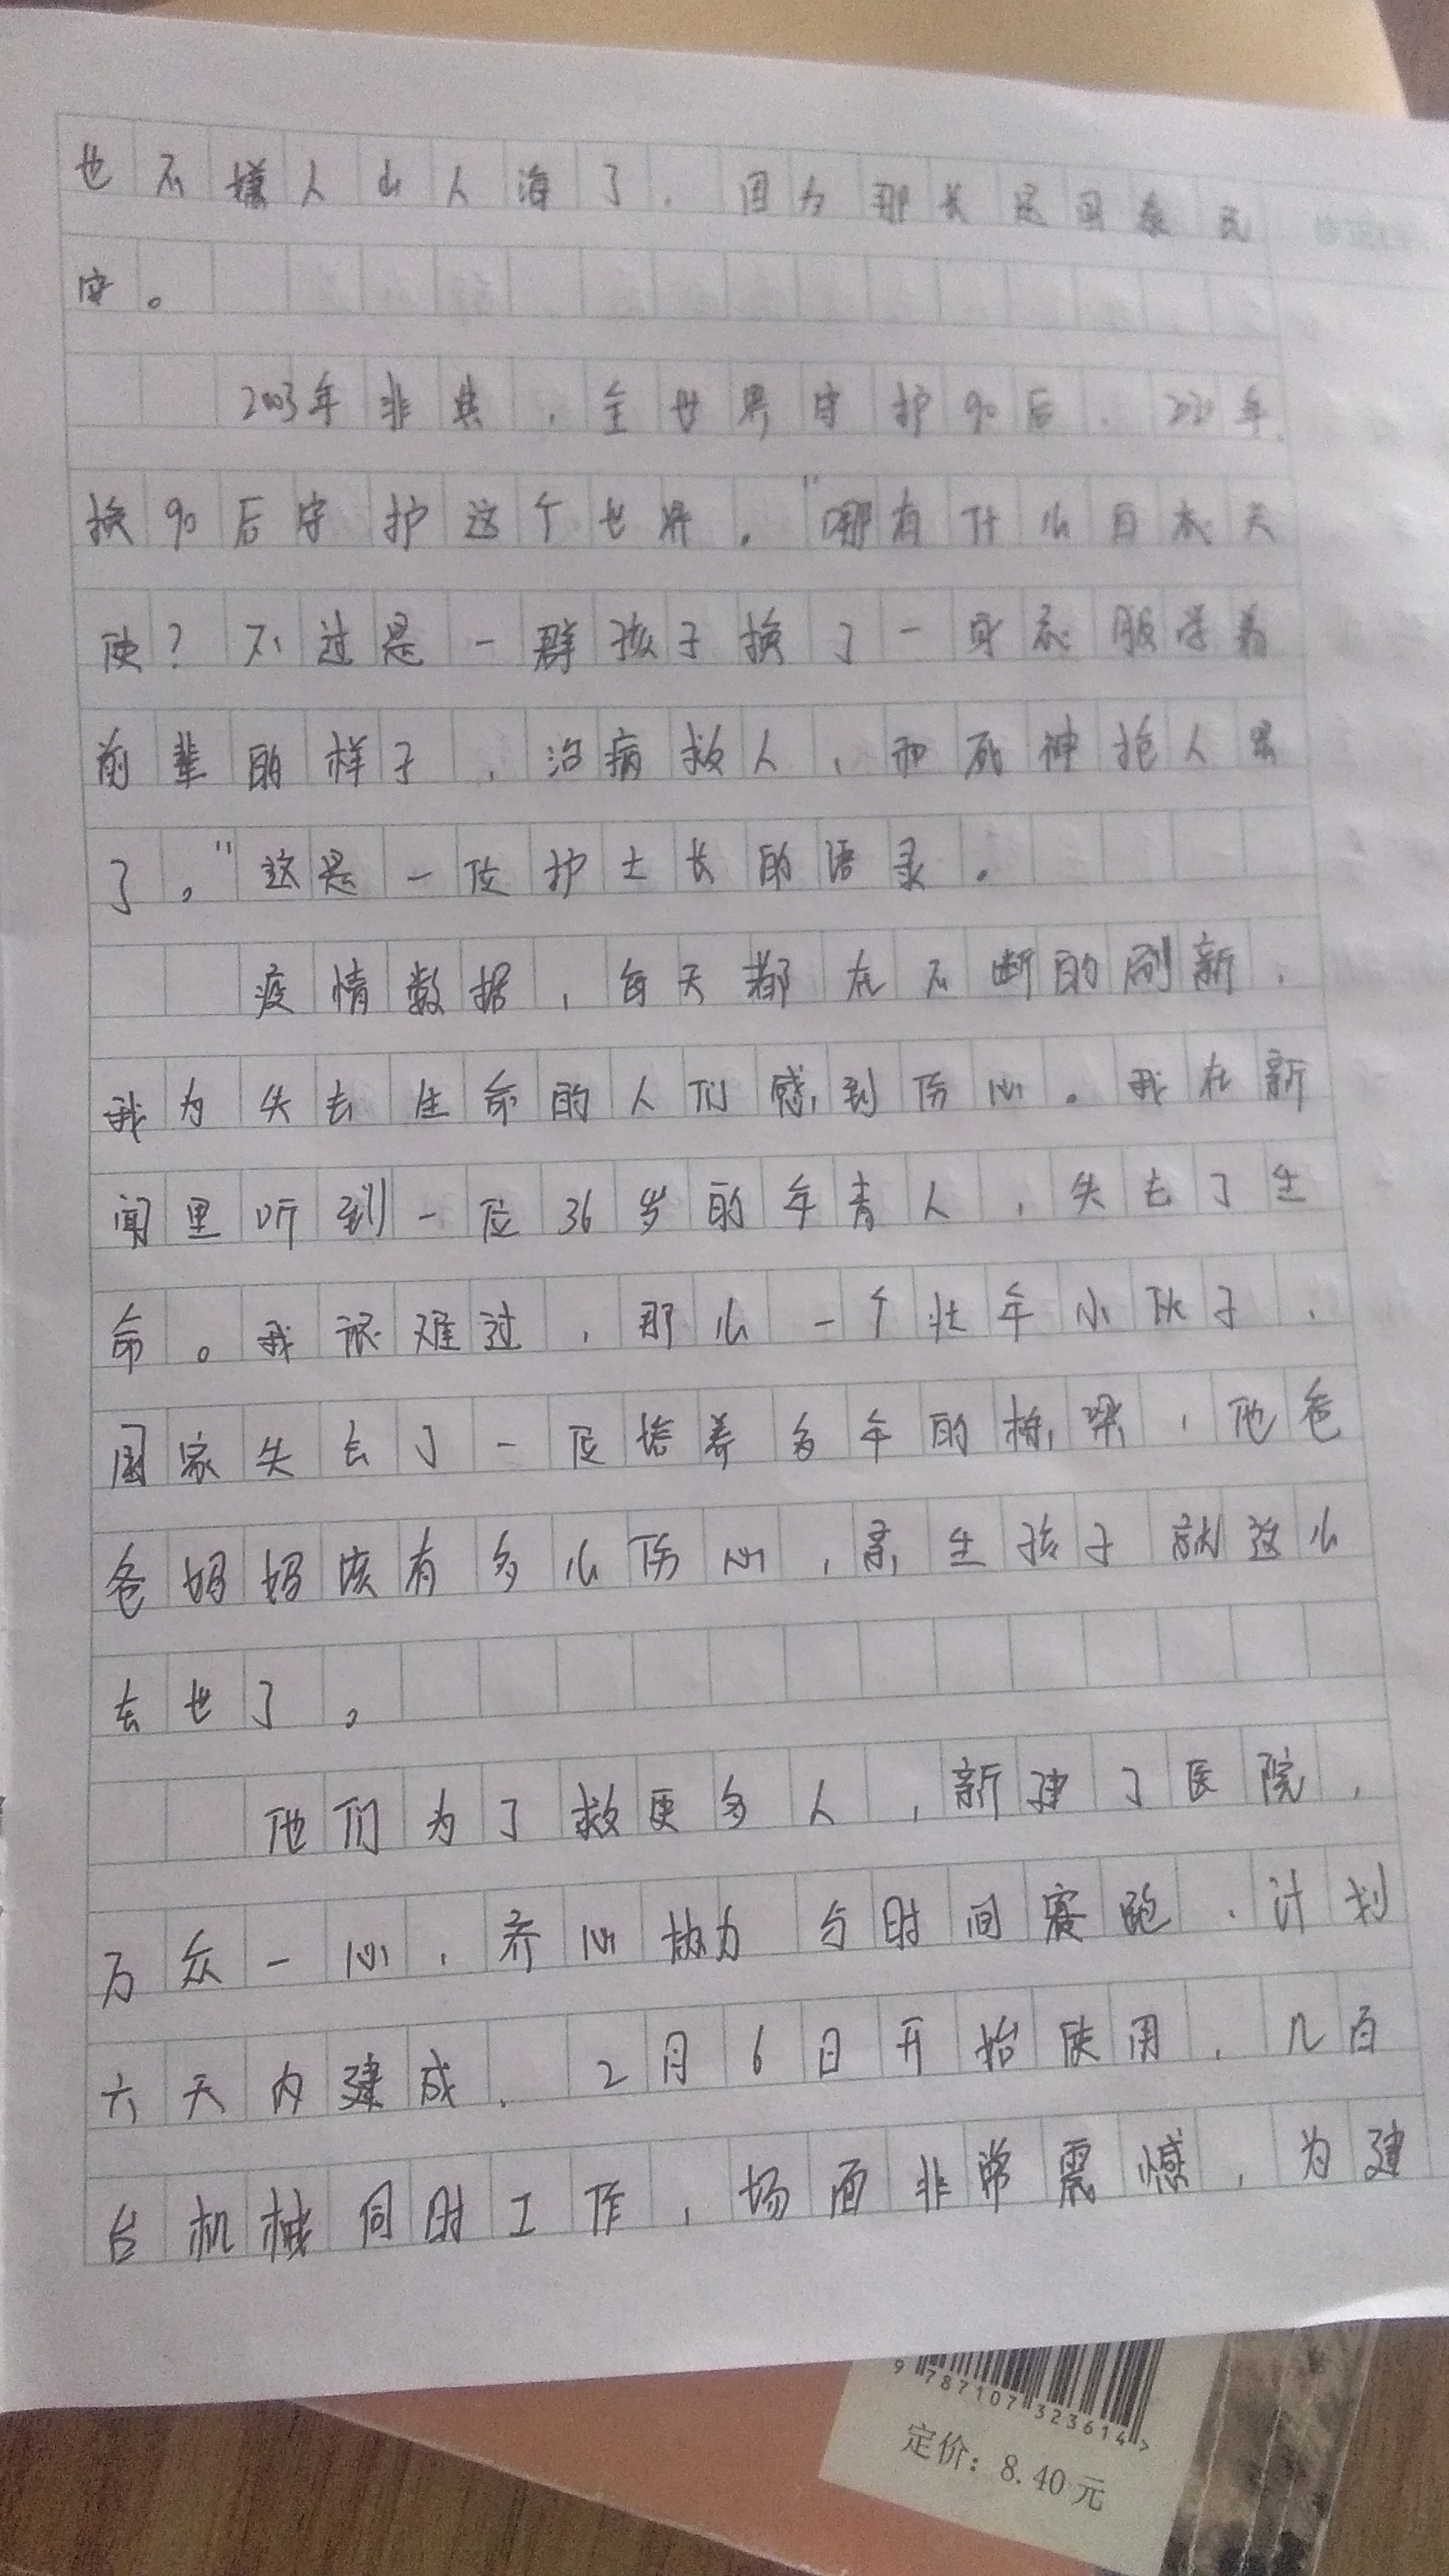 也不嫌人山人海了，因为那长是国泰民
安。
2003年非典，全世界守护90后，2020年，
换90后守护这个世界。"哪有什么白衣天
使？不过是一群孩子换了一身衣服学着
前辈的样子，治病救人，和死神抢人罢
了。"这是一位护士长的语录。
疫情数据，每天都在不断的刷新，
我为失去生命的人们感到伤心。我在新
闻里听到一位36岁的年青人，失去了生
命。我很难过，那么一个壮年小伙子，
国家失去了一位培养多年的栋梁，他爸
爸妈妈该有多么伤心，亲生孩子就这么
去世了。
他们为了救更多人，新建了医院，
万众一心，齐心协力与时间赛跑，计划
六天内建成，2月6日开始使用，几百
台机械同时工作，场面非常震憾，为建
9787107323614>
定价：8.40元